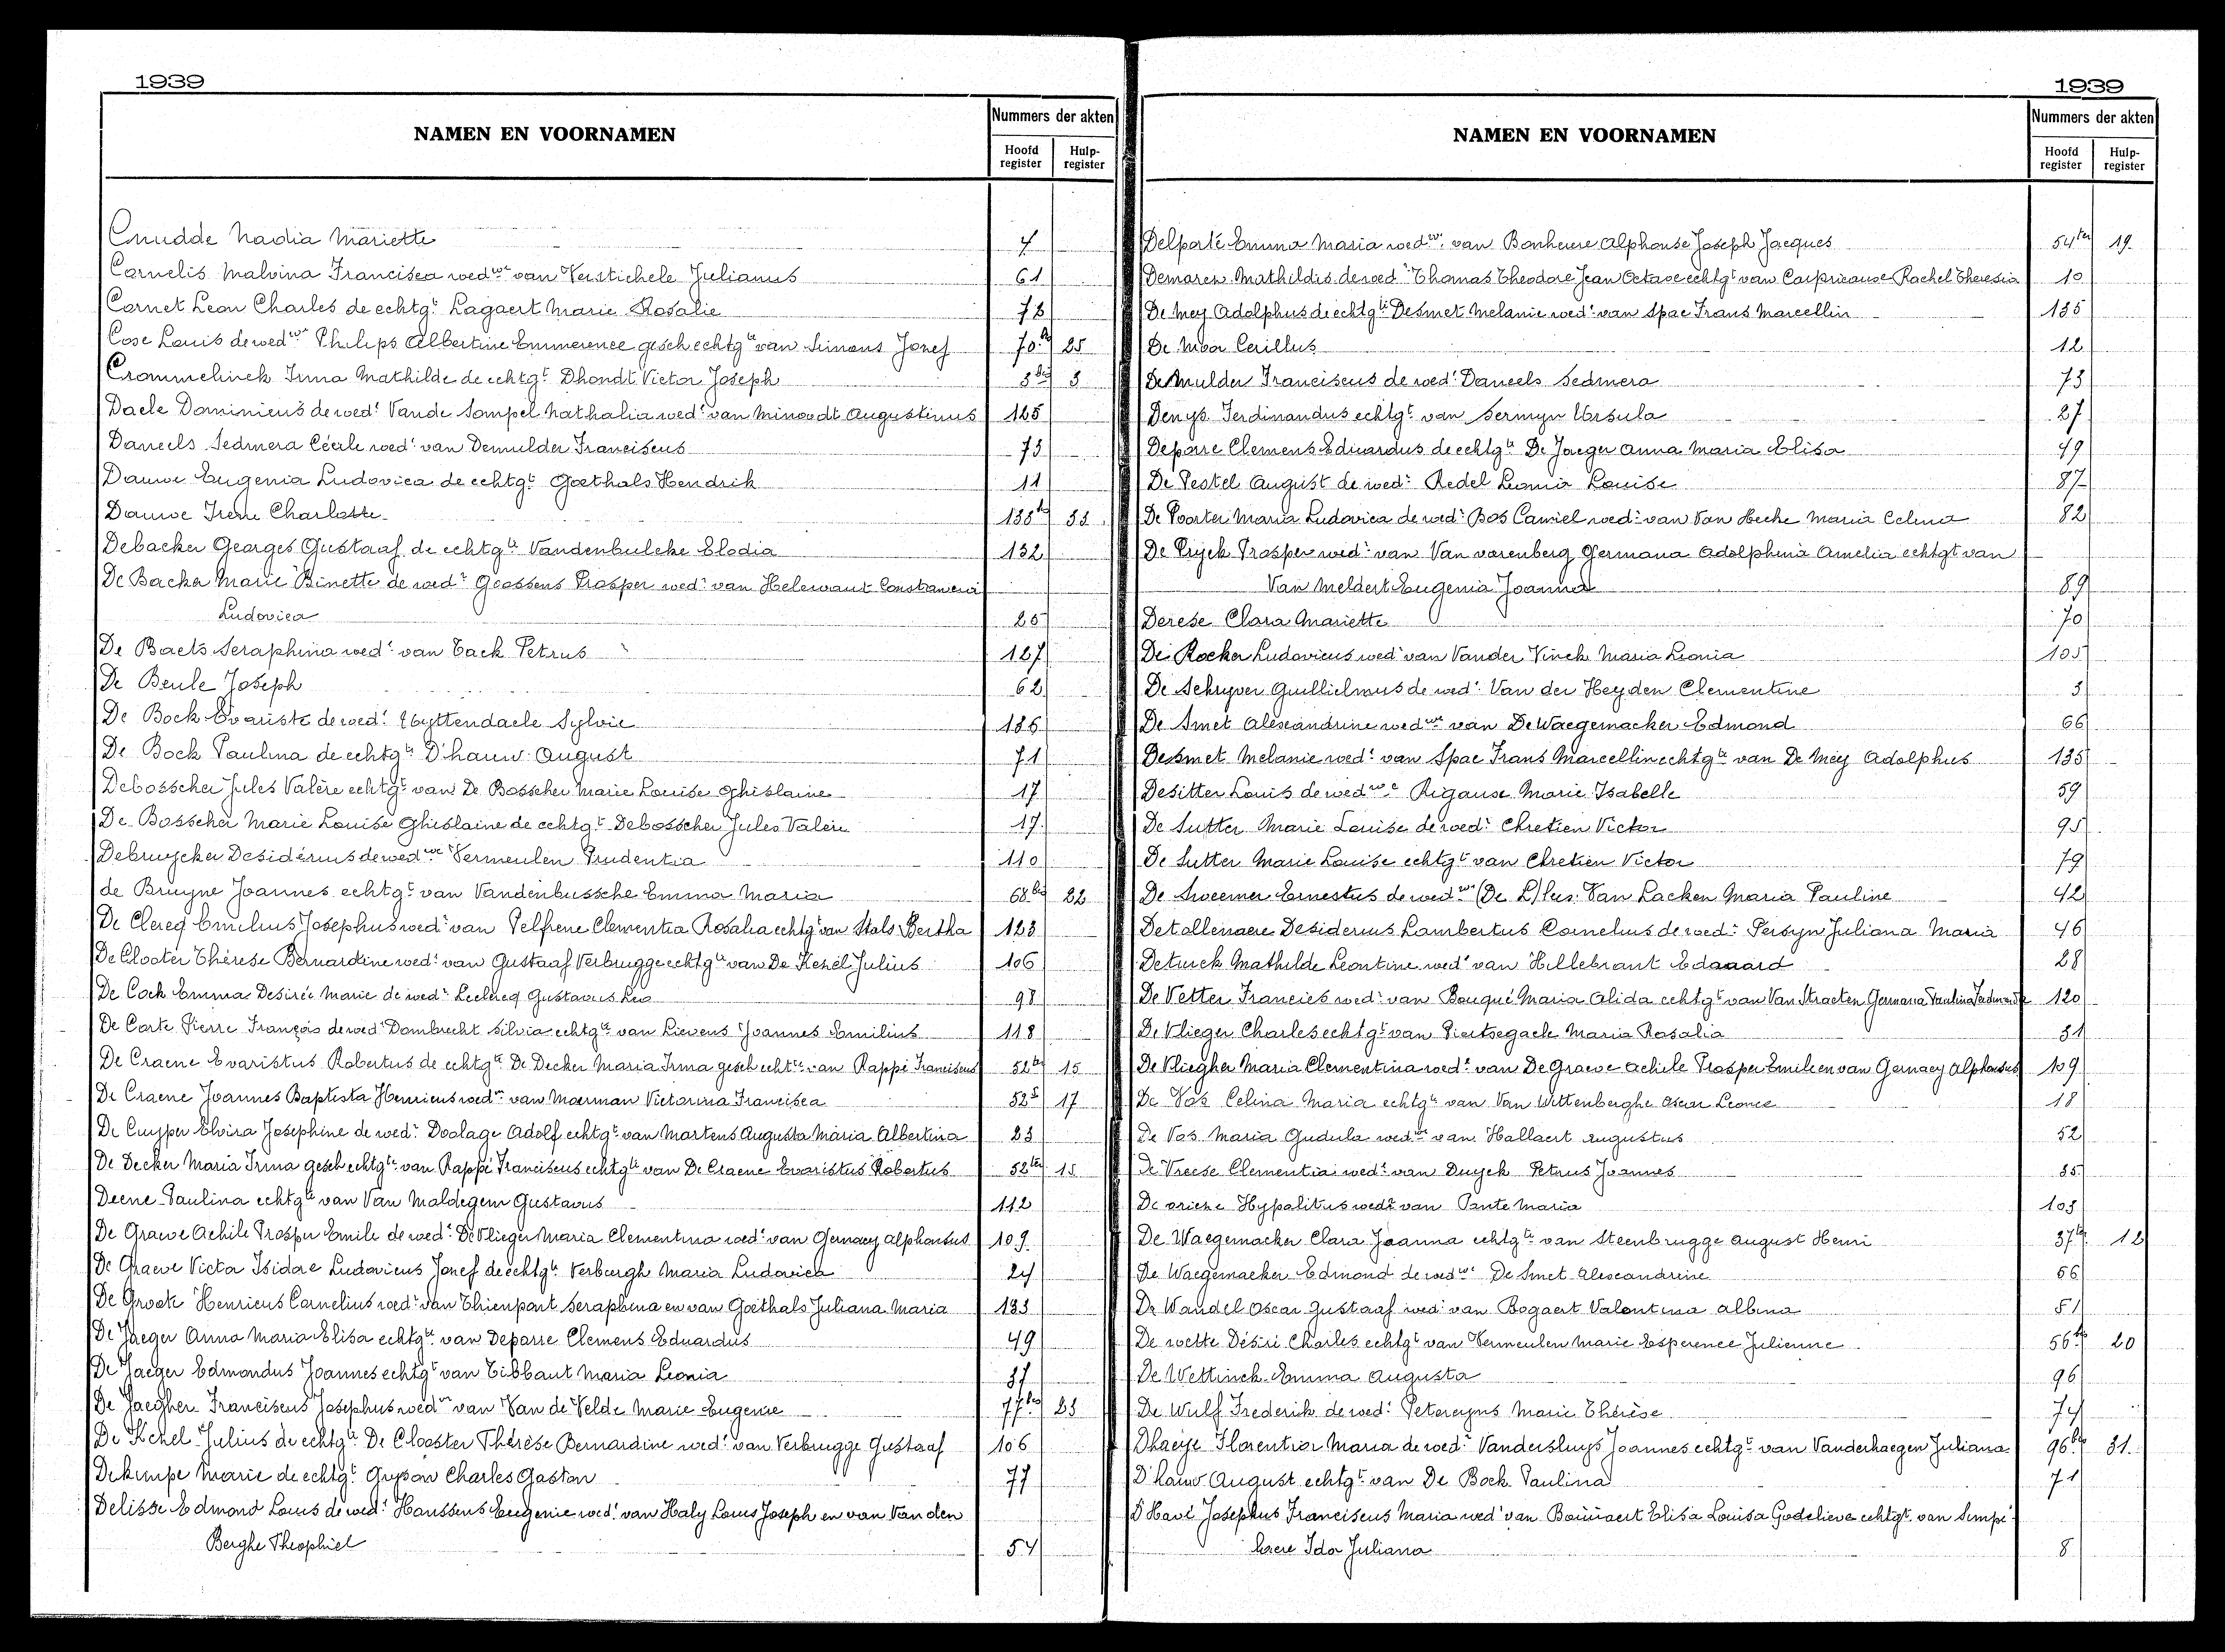 1939
NAMEN EN VOORNAMEN
Nummers der akten
Hoofd register
Hulp- register
Cnudde Nadia Mariette 7
Cornelis Malvina Francisca wedwe van Verstichele Julianus 61
Cornet Leon Charles de echtgt Lagaert Marie Rosalie 78
Cose Louis de wedwe Philips Albertine Emmerence gesch echtgte van Simons Jozef 70bis 25
Crommelinck Irma Mathilde de echtgt Dhondt Victor Joseph 3bis 3
Daele Dominicus de wede Vande Sompel Nathalia wede van Minnodt Augustinus 125
Daneels Sedmera Cécile wede van Demulder Franciscus 73
Dauwe Eugenia Ludovica de echtgt Goethals Hendrik 11
Dauwe Irene Charlotte 138bis 33
Debacker Georges Gustaaf de echtgte Vandenbulcke Elodia 132
De Backer Marie Binette de wedr Goossens Prosper wedr van Helewaut Constancia
Ludovica 25
De Baets Seraphina wede van Tack Petrus 127
De Beule Joseph 62
De Bock Evariste de wede Uyttendaele Sylvie 136
De Bock Paulina de echtgte D'hauw August 71
Debosscher Jules Valère echtgt van De Bosscher Marie Louise Ghislaine 17
De Bosscher Marie Louise Ghislaine de echtgt Debosscher Jules Valère 17
Debruycker Desidérius de wedwe Vermeulen Prudentia 110
de Bruyne Joannes echtgt van Vandenbussche Emma Maria 68bis 22
De Clercq Emilius Josephus wedr van Pelfrene Clementia Rosalia echtgt van Stals Bertha 123
De Clooter Thérèse Bernardine wede van Gustaaf Verbrugge echtgte van De Kezel Julius 106
De Cock Emma Desirée Marie de wedr Leclercq Gustavus Leo 98
De Corte Pierre François de wede Dombrecht Silvia echtgte van Lievens Joannes Emilius 118
De Craene Evaristus Robertus de echtgte De Decker Maria Irma gesch echtte van Rappé Franciscus 52ter 15
De Craene Joannes Baptista Henricus wedr van Moerman Victorina Francisca 52 17
De Cuyper Elvira Josephine de wedr Doolage Adolf echtgt van Martens Augusta Maria Albertina 23
De Decker Maria Irma gesch echtgte van Rappé Franciscus echtgte van De Craene Evaristus Robertus 52ter 15
Deene Paulina echtgte van Van Maldegem Gustavus 112
De Graeve Achile Prosper Emile de wede De Vlieger Maria Clementina wede van Gernaey Alphonsus 109
De Graeve Victor Isidore Ludovicus Jozef de echtgte Verburgh Maria Ludovica 24
De Groote Henricus Cornelius wedr van Thienpont Seraphina en van Goethals Juliana Maria 133
De Jaeger Anna Maria Elisa echtgte van Deparre Clemens Eduardus 49
De Jaeger Edmondus Joannes echtgt van Tibbaut Maria Leonia 37
De Jaegher Franciscus Josephus wedr van Van de Velde Marie Eugenie 77bis 23
De Kezel Julius de echtgte De Clooster Thérèse Bernardine wede van Verbrugge Gustaaf 106
Dekimpe Marie de echtgt Gyson Charles Gaston 77
Delisse Edmond Louis de wede Hanssens Eugenie wede van Haly Louis Joseph en van Van den
Berghe Theophiel 54
1939
NAMEN EN VOORNAMEN
Nummers der akten
Hoofd register
Hulp- register
Delporte Emma Maria wedwe van Bonheure Alphonse Joseph Jacques 54ter 19
Demarez Mathildis de wedr Thomas Theodore Jean Octave echtgt van Carpricause Rachel Theresia 10
De Mey Adolphus de echtgte Desmet Melanie wede van Spae Frans Marcellin 135
De Moor Cerillus 12
De Mulder Franciscus de wede Daneels Sedmera 73
Denys Ferdinandus echtgt van Sermyn Ursula 27
Deparre Clemens Eduardus de echtgte De Jaeger Anna Maria Elisa 49
De Pestel August de wede Redel Leonia Louise 87
De Poorter Maria Ludovica de wedr Bos Camiel wedr van Van Hecke Maria Celina 82
De Pryck Prosper wedr van Van varenberg Germana Adolphina Amelia echtgt van
Van Meldert Eugenia Joanna 89
Derese Clara Mariette 70
De Rocker Ludovicus wedr van Vander Vinck Maria Leonia 105
De Schryver Guillielmus de wede Van der Heyden Clementine 3
De Smet Alexandrine wedwe van De Waegemacker Edmond 66
Desmet Melanie wede van Spae Frans Marcellin echtgte van De Mey Adolphus 135
Desitter Louis de wedwe Rigause Marie Isabelle 59
De Sutter Marie Louise de wedr Chretien Victor 95
De Sutter Marie Louise echtgt van Chretien Victor 79
De Sweemer Ernestus de wedwe (De L) lees: Van Lacken Maria Pauline 42
Detollenaere Desiderius Lambertus Cornelius de wede Persyn Juliana Maria 46
Deturck Mathilde Leontine wede van Hillebrant Eduaard 28
De Vetter Francies wedr van Bouqué Maria Alida echtgt van Van Straeten Germana Paulina Ferdinanda 120
De Vlieger Charles echtgt van Pertsegaele Maria Rosalia 31
De Vliegher Maria Clementina wede van De Graeve Achile Prosper Emile en van Gernaey Alphonsus 109
De Vos Celina Maria echtgte van Van Wittenberghe Oscar Leonce 18
De Vos Maria Gudula wedwe van Hallaert Augustus 52
De Vreese Clementia wede van Duyck Petrus Joannes 35
De vrieze Hypolitus wedr van Pante Maria 103
De Waegemacker Clara Joanna echtgte van Steenbrugge August Henri 37bis 12
De Waegemaeker Edmond de wedwe De Smet Alexandrine 66
De Wandel Oscar Gustaaf wedr van Bogaert Valentina Albina 51
De wette Désiré Charles echtgt van Vermeulen Marie Esperence Julienne 56bis 20
De Wettinck Emma Augusta 96
De Wulf Frederik de wede Petereyns Marie Thérèse 74
Dhaeye Florentia Maria de wedr Vandersluys Joannes echtgt van Vanderhaegen Juliana 96bis 31
D'hauw August echtgt van De Bock Paulina 71
D'Havé Josephus Franciscus Maria wedr van Boúúaert Elisa Louisa Godelieve echtgt van Simpe-
laere Ida Juliana 8